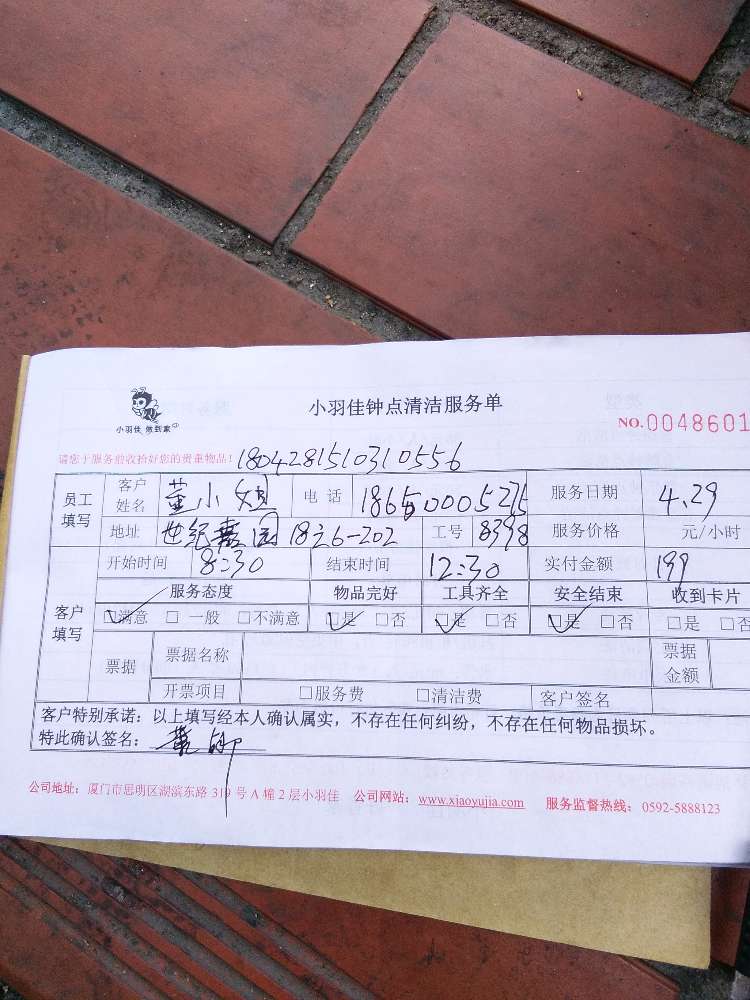 小羽佳 做到家
小羽佳钟点清洁服务单
NO.0048601
请您于服务前收拾好您的贵重物品！ 1804281510310556
员工填写 客户姓名 董小姐 电话 服务日期 4.29
地址 世纪嘉园 18之6-202 工号 8398 服务价格 元/小时
客户填写 开始时间 8:30 结束时间 12:30 实付金额 199
服务态度 物品完好 工具齐全 安全结束 收到卡片
☑满意 □ 一般 □不满意 ☑是 □否 ☑是 □否 ☑是 □否 □是 □否
票据 票据名称 票据金额
开票项目 □服务费 □清洁费 客户签名
客户特别承诺：以上填写经本人确认属实，不存在任何纠纷，不存在任何物品损坏。
特此确认签名：
公司地址：厦门市思明区湖滨东路 319 号 A 幢 2 层小羽佳 公司网站：www.xiaoyujia.com 服务监督热线：0592-5888123